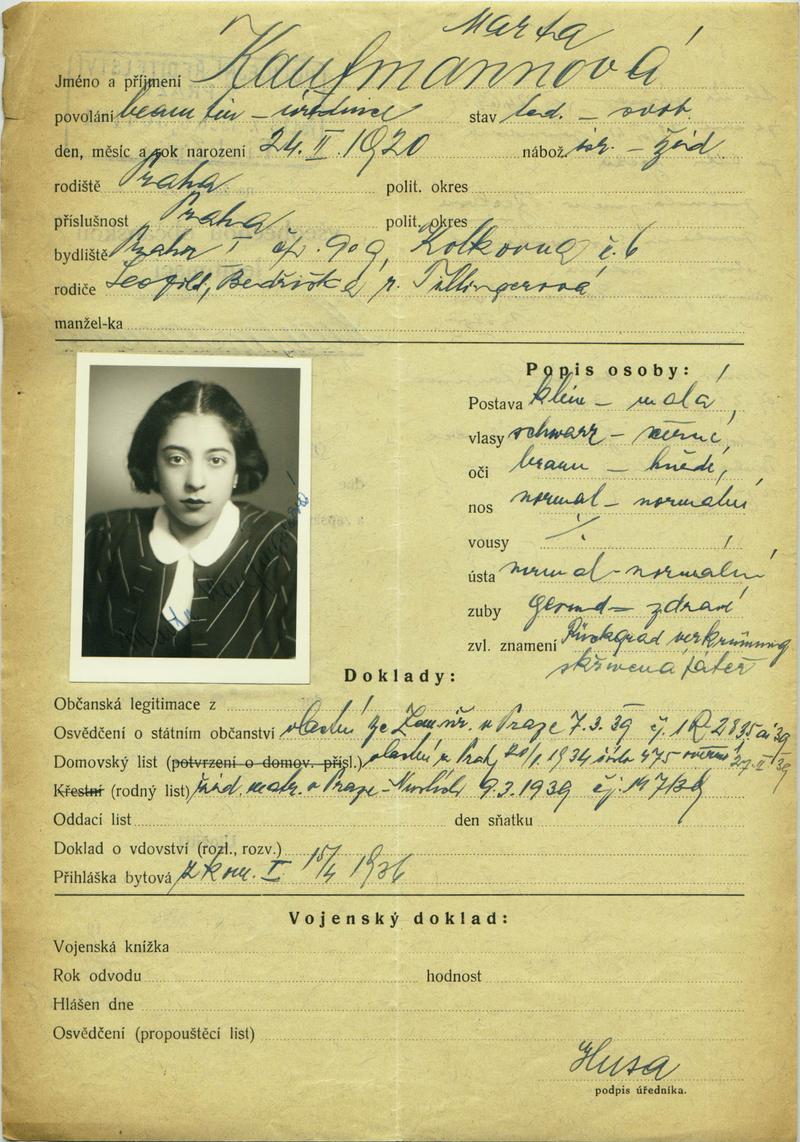 Marta
Jméno a příjmení Kaufmannová
povolání beamtin – úřednice stav led. – svob.
den, měsíc a rok narození 24. II. 1920 nábož. isr. – žid.
rodiště Praha polit. okres
příslušnost Praha polit. okres
bydliště Praha I čp. 909, Kolkovna č. 6
rodiče Leopold, Bedřiška, r. Tillingerová
manžel-ka
Popis osoby:
Postava klein – malá,
vlasy schwarz – černé,
oči braun – hnědé,
nos normal – normální
vousy ./.
ústa normal – normální
zuby gesund – zdravé
zvl. znamení Rückgrad verkrümung
skřivená páteř
Marta Kaufmannová
Doklady:
Občanská legitimace z
Osvědčení o státním občanství vlastní Praze 7.3.39 čj.
Domovský list (potvrzení o domov. přísl.) vlastní v 1934 číslo 475
Křestní (rodný list) žid. matr. v Praze 9.3.1939 čj.
Oddací list den sňatku
Doklad o vdovství (rozl., rozv.)
Přihláška bytová z kom. I 15/4 1936
Vojenský doklad:
Vojenská knížka
Rok odvodu hodnost
Hlášen dne
Osvědčení (propouštěcí list)
Husa
podpis úředníka.